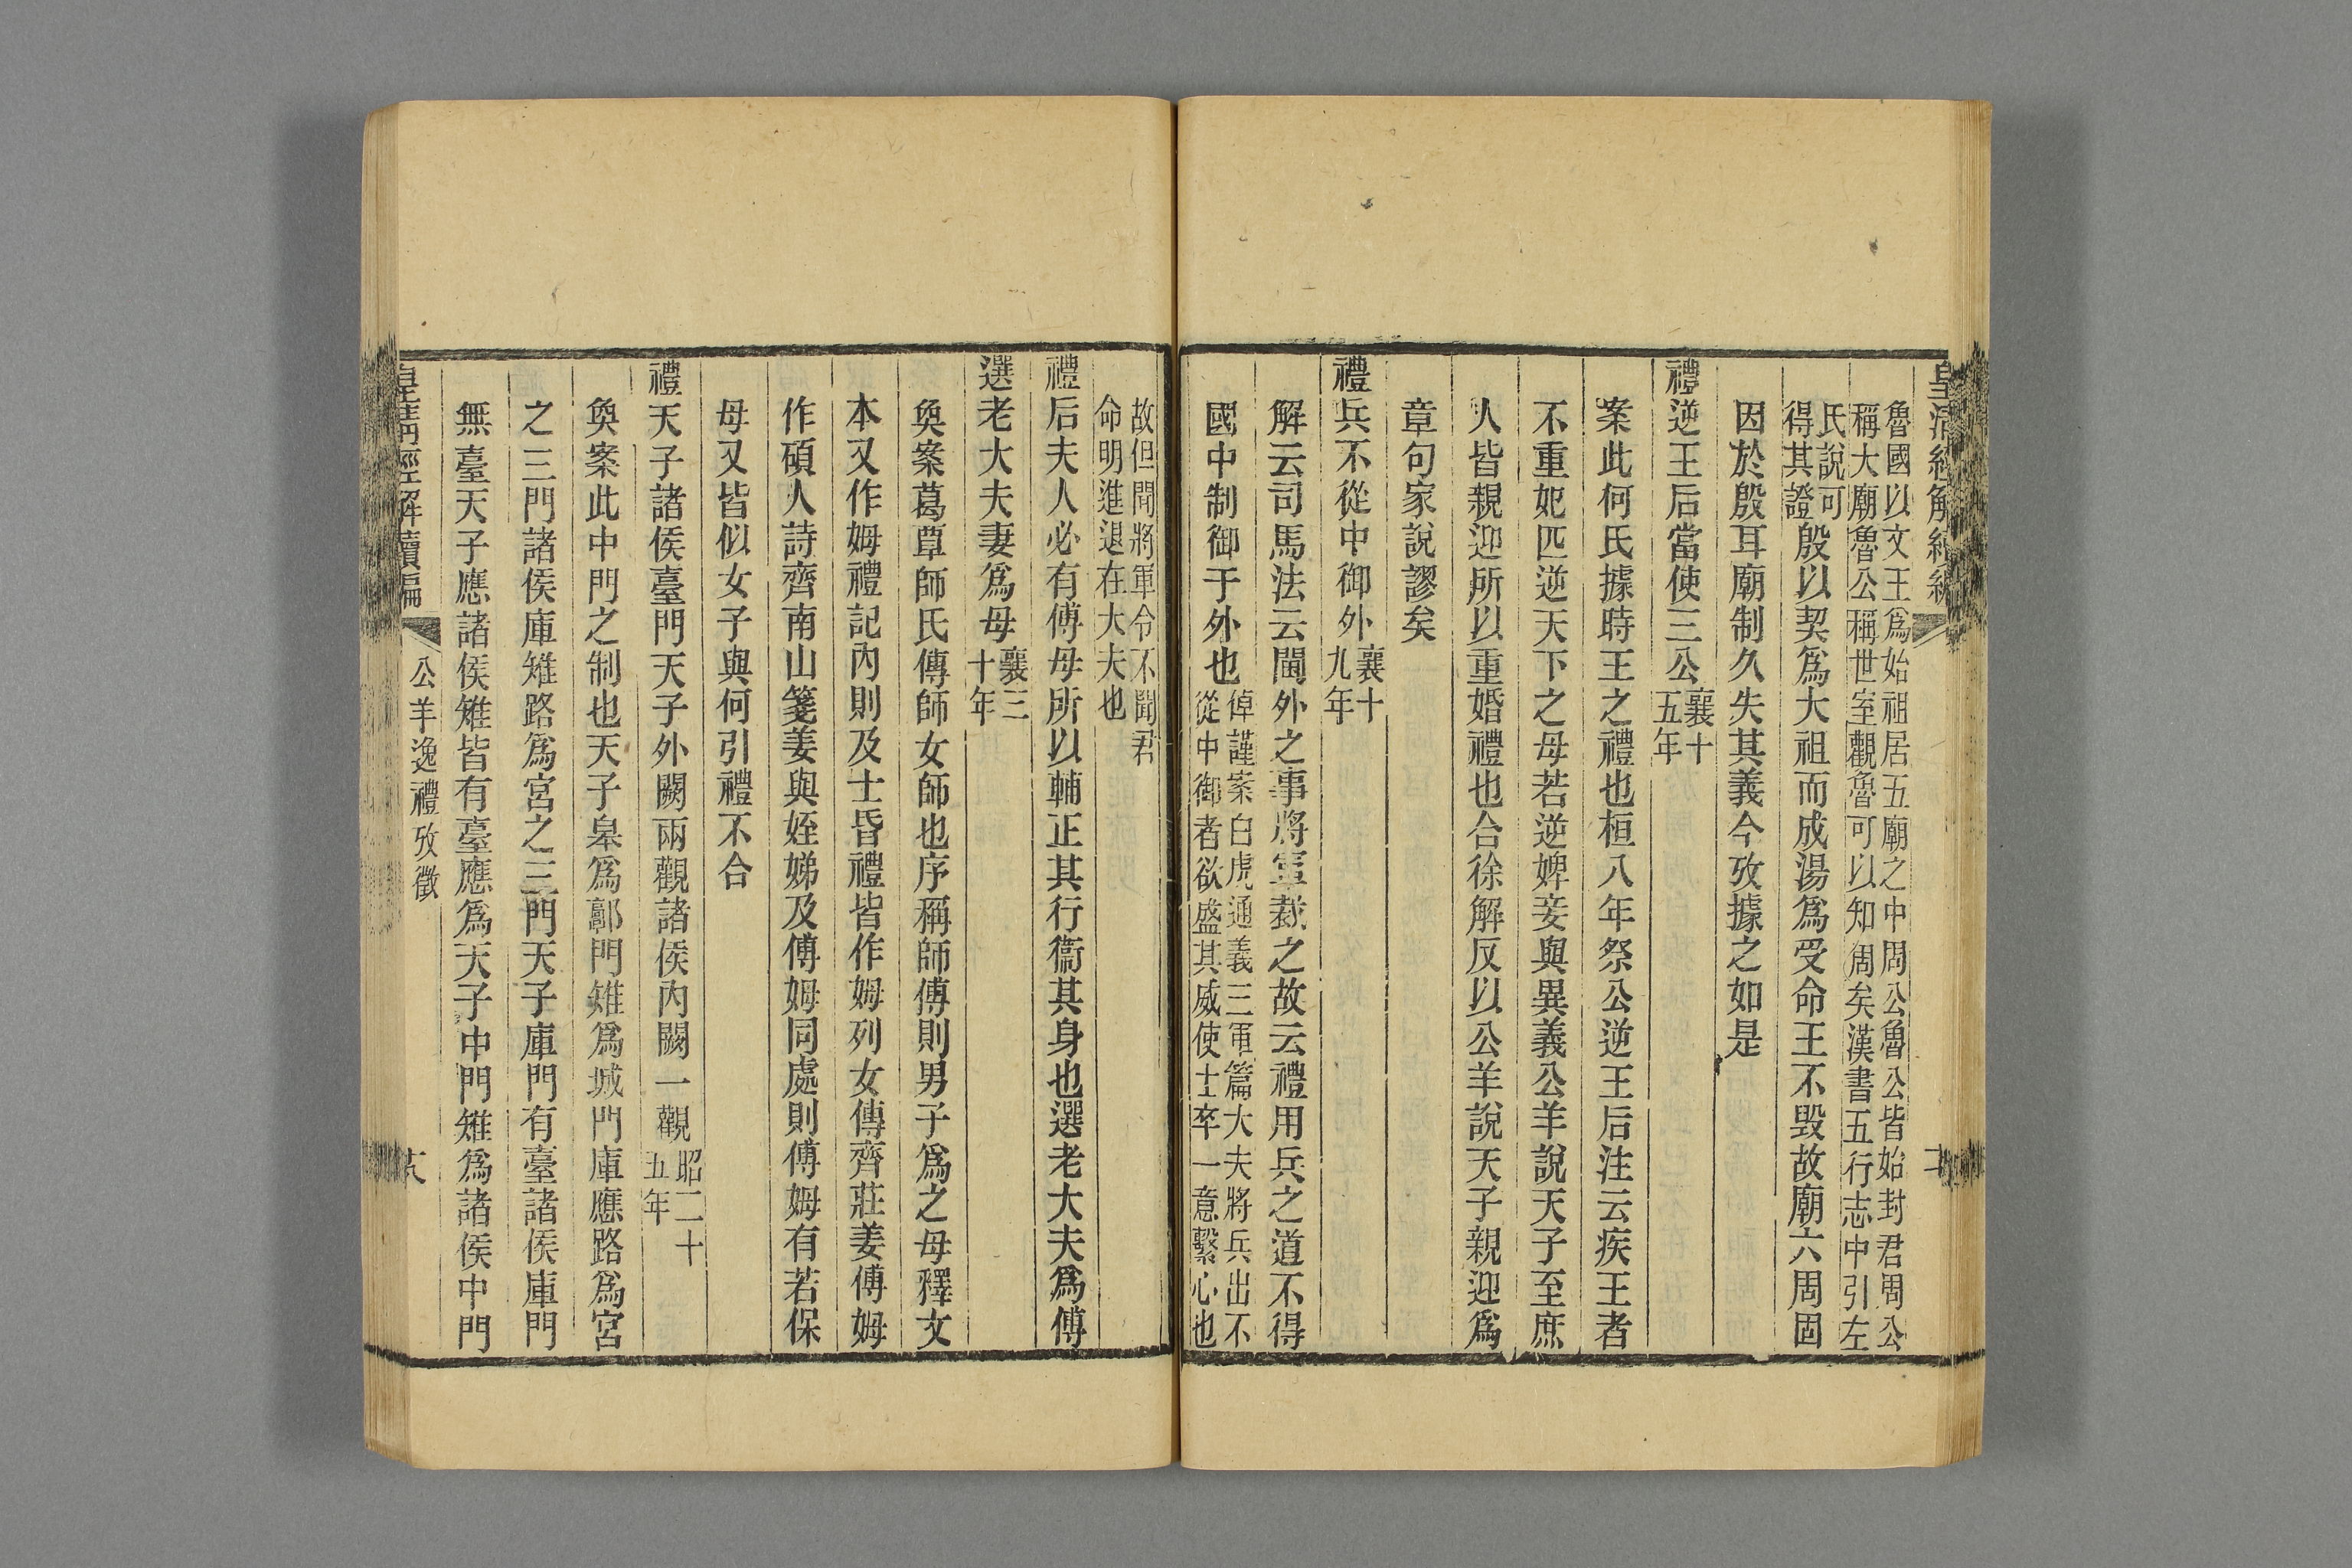 皇清經解續編
魯國以文王爲始祖居五廟之中周公魯公皆始封君周公
稱大廟魯公稱世室觀魯可以知周矣漢書五行志中引左
氏說可
得其證殷以契爲大祖而成湯爲受命王不毀故廟六周固
因於殷耳廟制久失其義今攷據之如是
禮逆王后當使三公襄十
五年
案此何氏據時王之禮也桓八年祭公逆王后注云疾王者
不重妃匹逆天下之母若逆婢妾與異義公羊說天子至庶
人皆親迎所以重婚禮也合徐解反以公羊說天子親迎爲
章句家說謬矣
禮兵不從中御外襄十
九年
解云司馬法云閫外之事將軍裁之故云禮用兵之道不得
國中制御于外也倬謹案白虎通義三軍篇大夫將兵出不
從中御者欲盛其威使士卒一意繫心也
故但聞將軍令不聞君
命明進退在大夫也
禮后夫人必有傅母所以輔正其行衞其身也選老大夫爲傅
選老大夫妻爲母襄三
十年
奐案葛覃師氏傳師女師也序稱師傅則男子爲之母釋文
本又作姆禮記內則及士昏禮皆作姆列女傳齊莊姜傅姆
作碩人詩齊南山箋姜與姪娣及傅姆同處則傅姆有若保
母又皆似女子與何引禮不合
禮天子諸侯臺門天子外闕兩觀諸侯內闕一觀昭二十
五年
奐案此中門之制也天子皋爲郭門雉爲城門庫應路爲宮
之三門諸侯庫雉路爲宮之三門天子庫門有臺諸侯庫門
無臺天子應諸侯雉皆有臺應爲天子中門雉爲諸侯中門
皇淸經解續編
公羊逸禮攷徵